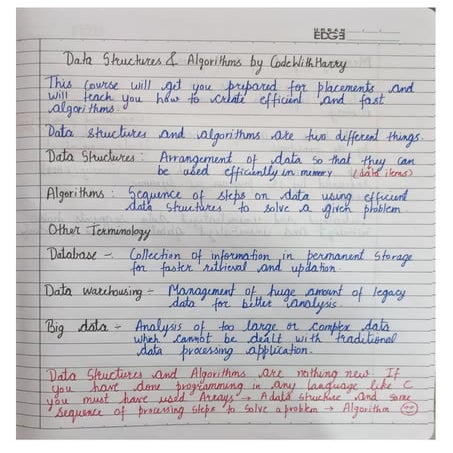 EDGE
Data Structures & Algorithms by CodeWithHarry
This course will get you prepared for placements and
will teach you how to create efficient and fast
algorithms.
Data structures and algorithms are two different things.
Data Structures : Arrangement of data so that they can
be used efficiently in memory (data items)
Algorithms : Sequence of steps on data using efficient
data structures to solve a given problem
Other Terminology
Database - Collection of information in permanent storage
for faster retrieval and updation.
Data warehousing - Management of huge amount of legacy
data for better analysis.
Big data - Analysis of too large or complex data
which cannot be dealt with traditional
data processing application.
Data Structures and Algorithms are nothing new. If
you have done programming in any language like C
you must have used Arrays → A data structure and some
sequence of processing steps to solve a problem → Algorithm